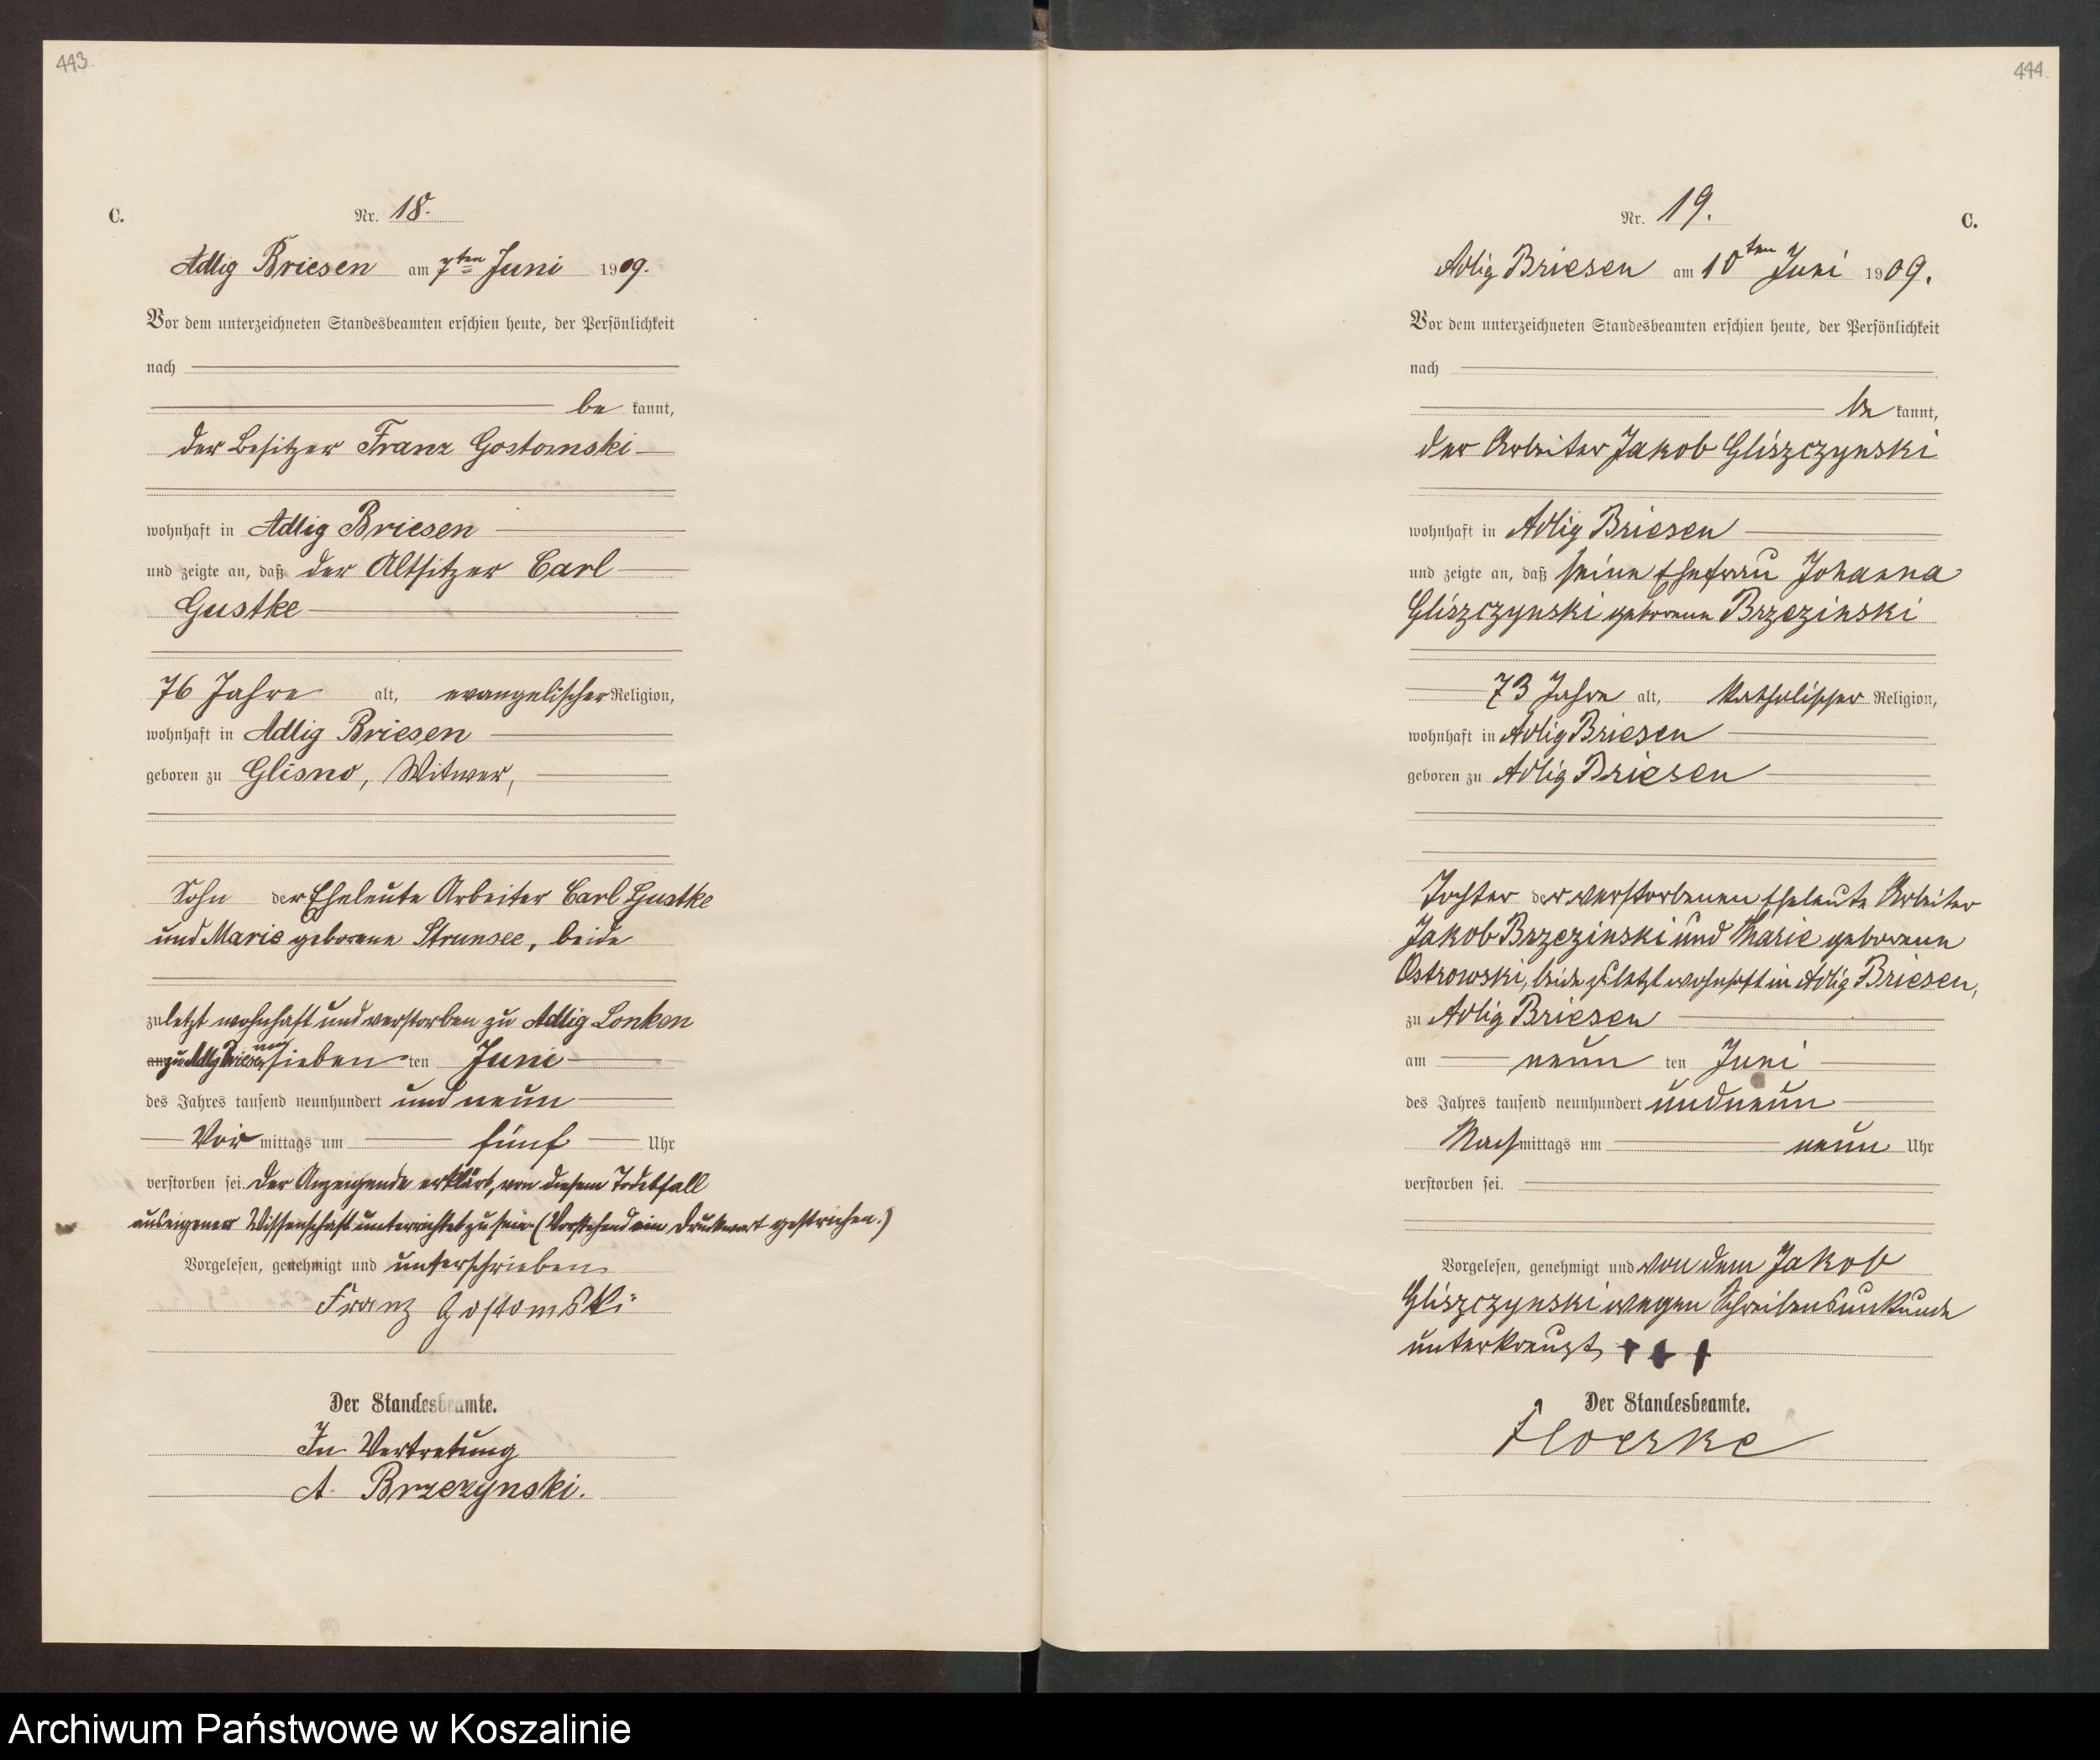 443.
C.
Nr. 18.
Adlig Briesen am 7ten Juni 1909.
Vor dem unterzeichneten Standesbeamten erschien heute, der Persönlichkeit
nach
be kannt,
der Besitzer Franz Gostomski
wohnhaft in Adlig Briesen
und zeigte an, daß der Altsitzer Carl
Gustke
76 Jahre alt, evangelischer Religion,
wohnhaft in Adlig Briesen
geboren zu Glisno, Witwer,
Sohn der Eheleute Arbeiter Carl Gustke
und Marie geborene Strunsee, beide
zuletzt wohnhaft und verstorben zu Adlig Lonken
am zu Adlig Briesen am sieben ten Juni
des Jahres tausend neunhundert und neun
Vor mittags um fünf Uhr
verstorben sei. Der Anzeigende erklärt, von diesem Todesfall
aus eigener Wissenschaft unterrichtet zu sein. (Vorstehend ein Druckwort gestrichen.)
Vorgelesen, genehmigt und unterschrieben
Franz Gostomski
Der Standesbeamte.
In Vertretung
A. Brzezynski.
444.
Nr. 19.
C.
Adlig Briesen am 10ten Juni 1909.
Vor dem unterzeichneten Standesbeamten erschien heute, der Persönlichkeit
nach
be kannt,
der Arbeiter Jakob Gliszczynski
wohnhaft in Adlig Briesen
und zeigte an, daß seine Ehefrau Johanna
Gliszczynski geborene Brzezinski
73 Jahre alt, katholischer Religion,
wohnhaft in Adlig Briesen
geboren zu Adlig Briesen
Tochter der verstorbenen Eheleute Arbeiter
Jakob Brzezinski und Marie geborene
Ostrowski, beide zuletzt wohnhaft in Adlig Briesen,
zu Adlig Briesen
am neun ten Juni
des Jahres tausend neunhundert und neun
Nach mittags um neun Uhr
verstorben sei.
Vorgelesen, genehmigt und von dem Jakob
Gliszczynski wegen Schreibensunkunde
unterkreuzt + + +
Der Standesbeamte.
Archiwum Państwowe w Koszalinie